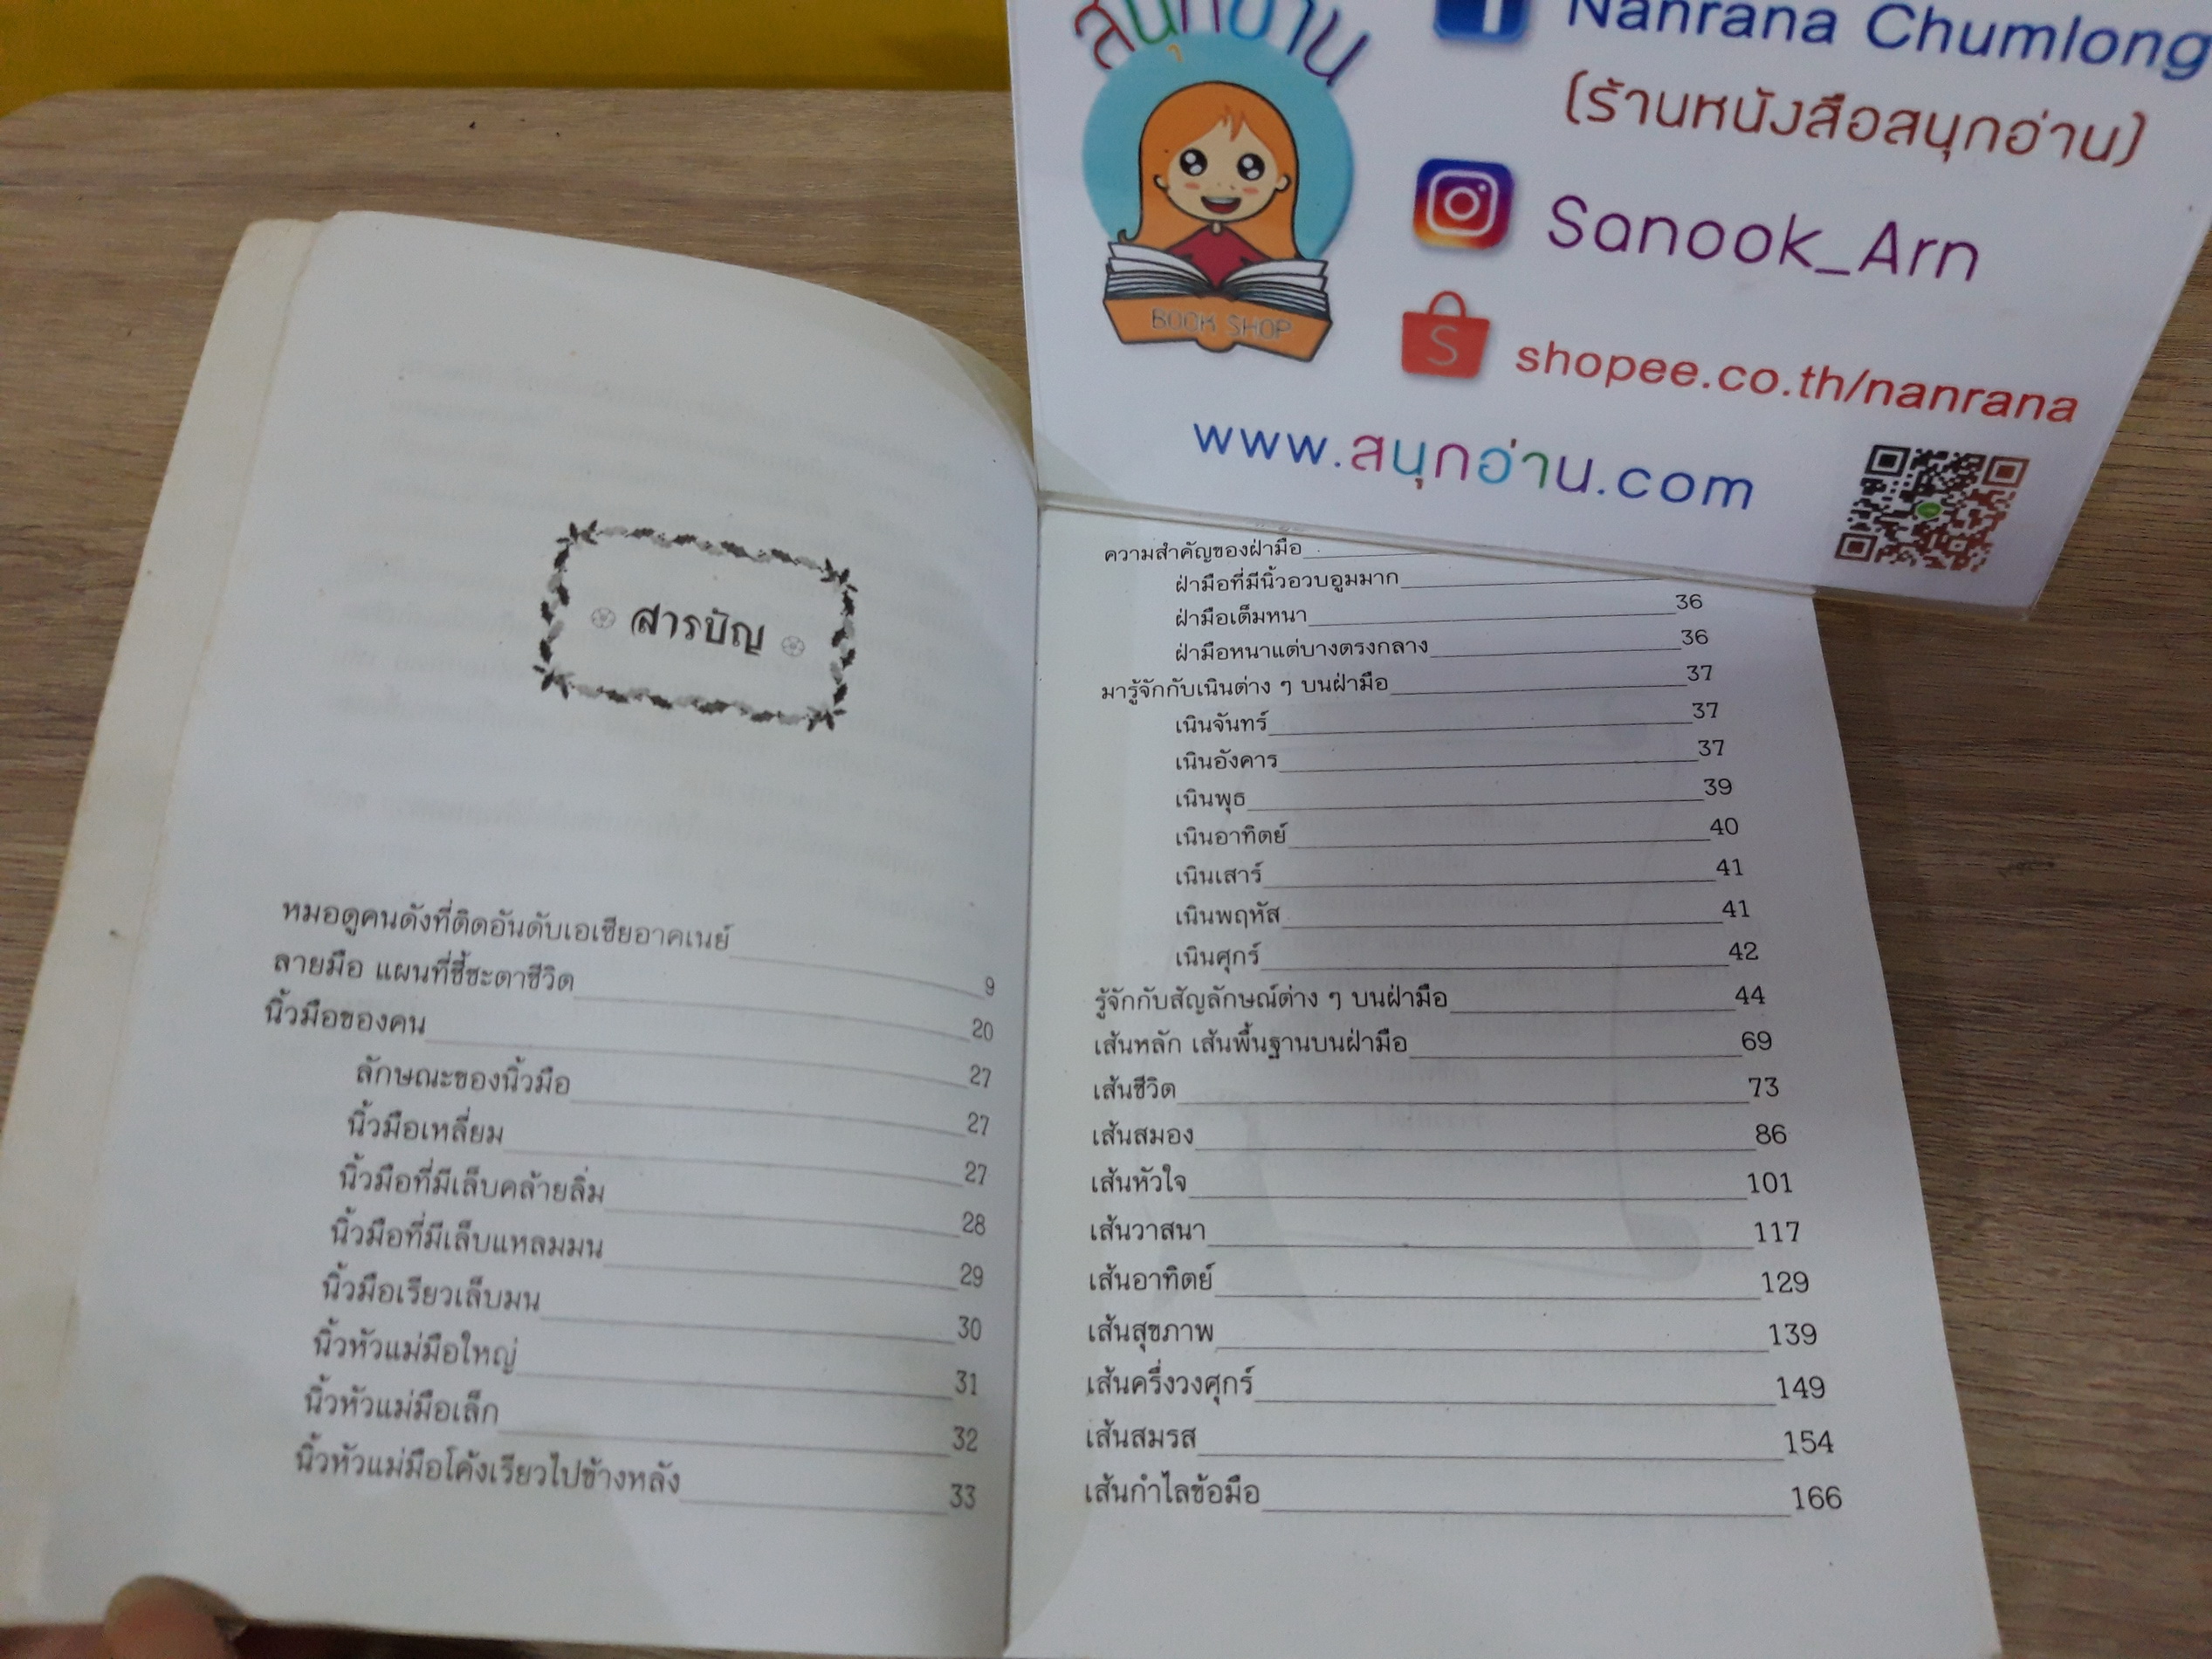 สารบัญ
หมอดูคนดังที่ติดอันดับเอเชียอาคเนย์ 9
ลายมือ แผนที่ชี้ชะตาชีวิต 20
นิ้วมือของคน 27
ลักษณะของนิ้วมือ 27
นิ้วมือเหลี่ยม 27
นิ้วมือที่มีเล็บคล้ายลิ่ม 28
นิ้วมือที่มีเล็บแหลมมน 29
นิ้วมือเรียวเล็บมน 30
นิ้วหัวแม่มือใหญ่ 31
นิ้วหัวแม่มือเล็ก 32
นิ้วหัวแม่มือโค้งเรียวไปข้างหลัง 33
สนุกอ่าน
BOOK SHOP
Nanrana Chumlong
(ร้านหนังสือสนุกอ่าน)
Sanook_Arn
S
shopee.co.th/nanrana
www.สนุกอ่าน.com
ความสำคัญของฝ่ามือ
ฝ่ามือที่มีนิ้วอวบอูมมาก
ฝ่ามือเต็มหนา 36
ฝ่ามือหนาแต่บางตรงกลาง 36
มารู้จักกับเนินต่าง ๆ บนฝ่ามือ 37
เนินจันทร์ 37
เนินอังคาร 37
เนินพุธ 39
เนินอาทิตย์ 40
เนินเสาร์ 41
เนินพฤหัส 41
เนินศุกร์ 42
รู้จักกับสัญลักษณ์ต่าง ๆ บนฝ่ามือ 44
เส้นหลัก เส้นพื้นฐานบนฝ่ามือ 69
เส้นชีวิต 73
เส้นสมอง 86
เส้นหัวใจ 101
เส้นวาสนา 117
เส้นอาทิตย์ 129
เส้นสุขภาพ 139
เส้นครึ่งวงศุกร์ 149
เส้นสมรส 154
เส้นกำไลข้อมือ 166